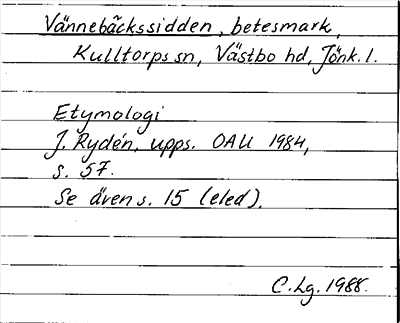 Vännebäckssidden, betesmark,
Kulltorps sn, Västbo hd, Jönk. l.
Etymologi
J. Rydén, upps. OAU 1984,
s. 57.
Se även s. 15 (eled).
C. Lg. 1988.